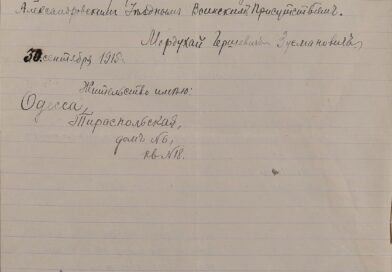 Александровскимъ Уѣзднымъ Воинскимъ Присутствіемъ.
Мордухай Гершевичъ Зусмановичъ
30 сентября 1915
Жительство имѣю:
Одесса,
Тираспольская,
домъ №6,
кв №18.